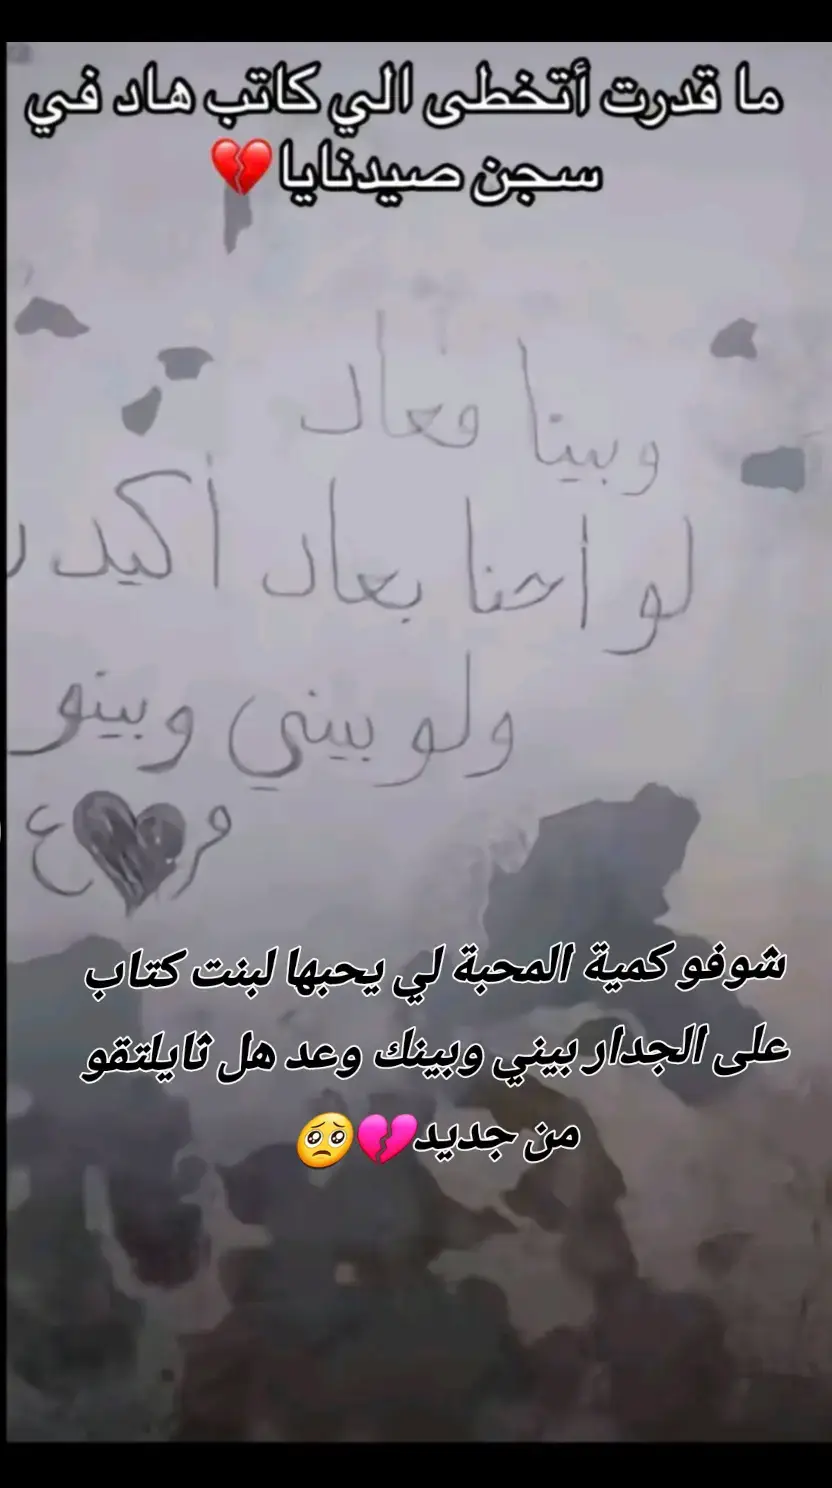 ما قدرت أتخطى الي كاتب هاد في
سجن صيدنايا💔
وبينا معاد
لو أحنا بعاد أكيد ر
ولو بيني وبينو
م ع
شوفو كمية المحبة لي يحبها لبنت كتاب
على الجدار بيني وبينك وعد هل ثايلتقو
من جديد💔🥺